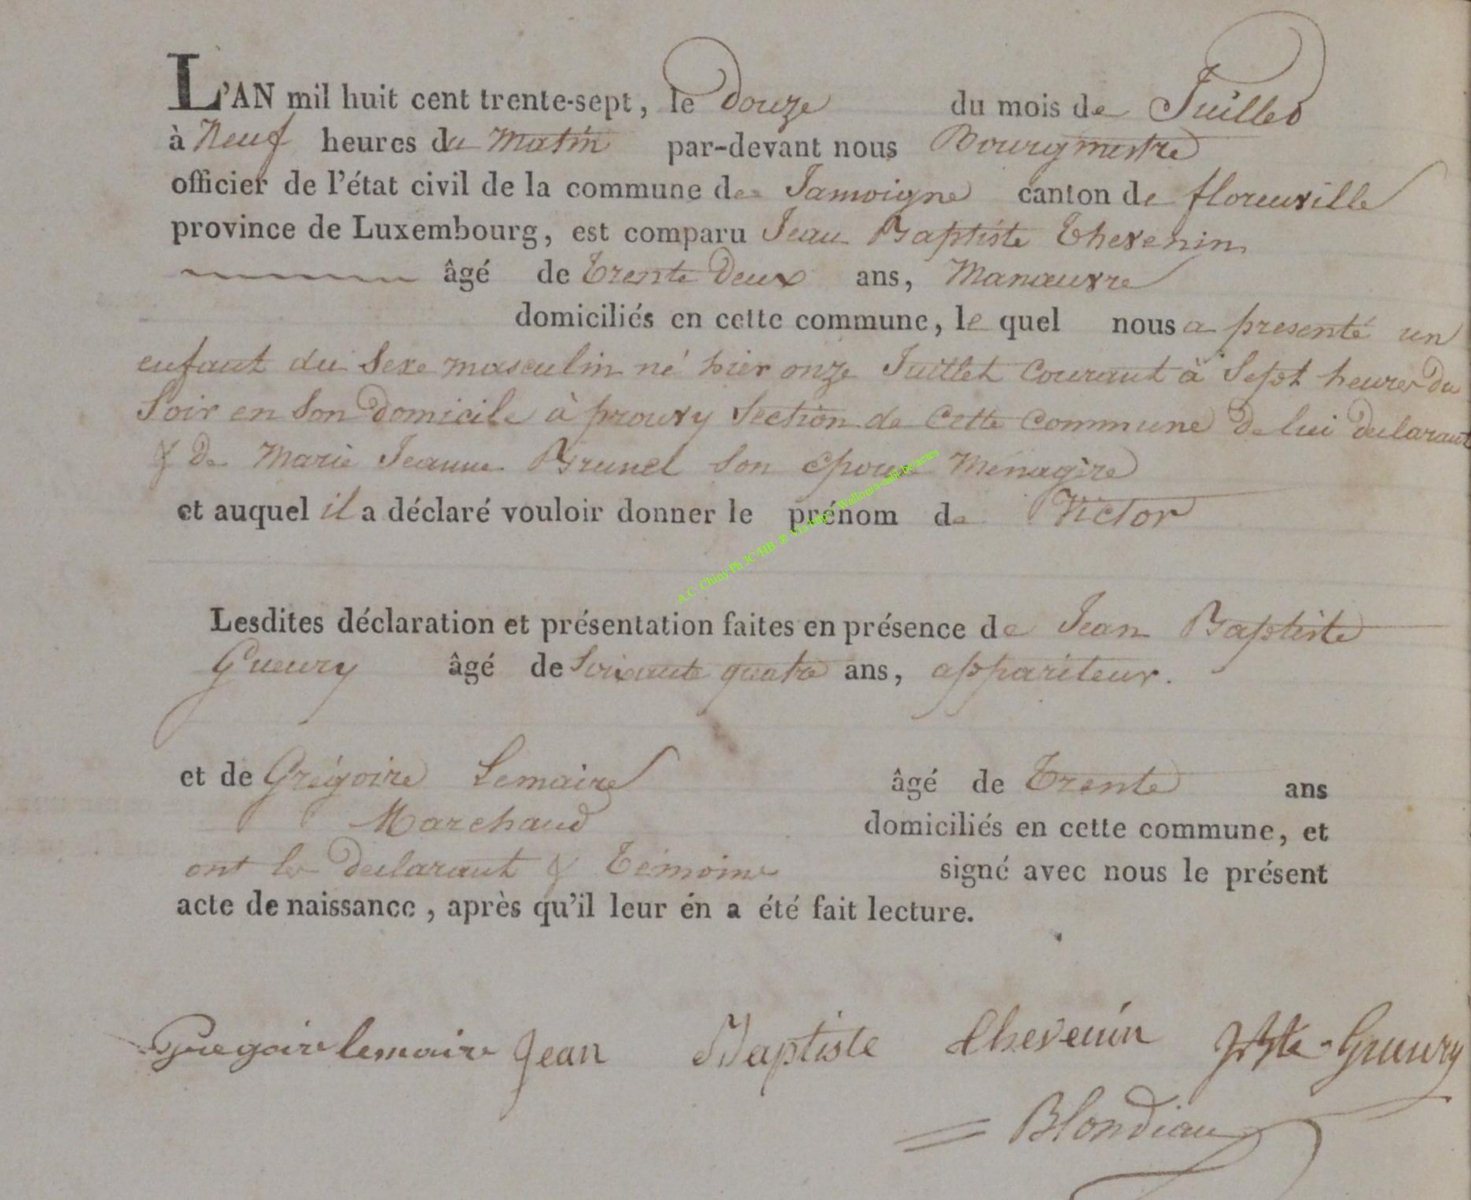 L'AN mil huit cent trente-sept, le douze du mois de Juillet
à Neuf heures du Matin par-devant nous Bourgmestre
officier de l'état civil de la commune de Jamoigne canton de florenville
province de Luxembourg, est comparu Jean Baptiste Thevenin
âgé de Trente Deux ans, Manœuvre
domiciliés en cette commune, le quel nous a presenté un
enfant du Sexe masculin né hier onze Juillet Courant à Sept heures du
Soir en Son Domicile à prouvy Section de Cette Commune De lui declarant
& De Marie Jeanne Brunel Son Epouse Menagère
et auquel il a déclaré vouloir donner le prénom de Victor
Lesdites déclaration et présentation faites en présence de Jean Baptiste
Gueury âgé de Soixante quatre ans, appariteur.
et de Grégoire Lemaire âgé de Trente ans
Marchand domiciliés en cette commune, et
ont les Declarant & Témoins signé avec nous le présent
acte de naissance, après qu'il leur én a été fait lecture.
Gregoire lemaire Jean Baptiste thevenin JBte Gueury
Blondiau